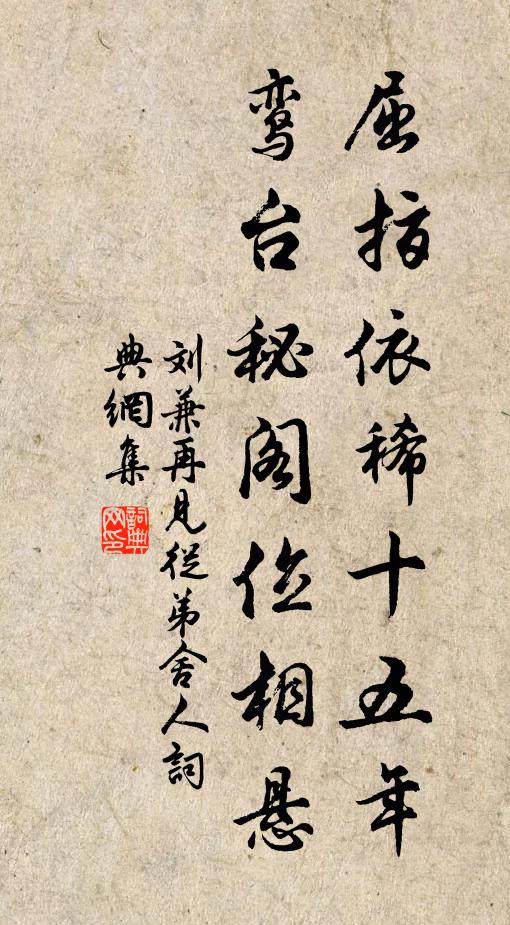 屈指依稀十五年
鸾台秘阁位相悬
刘兼再见从弟舍人词
典網集
詞典网印